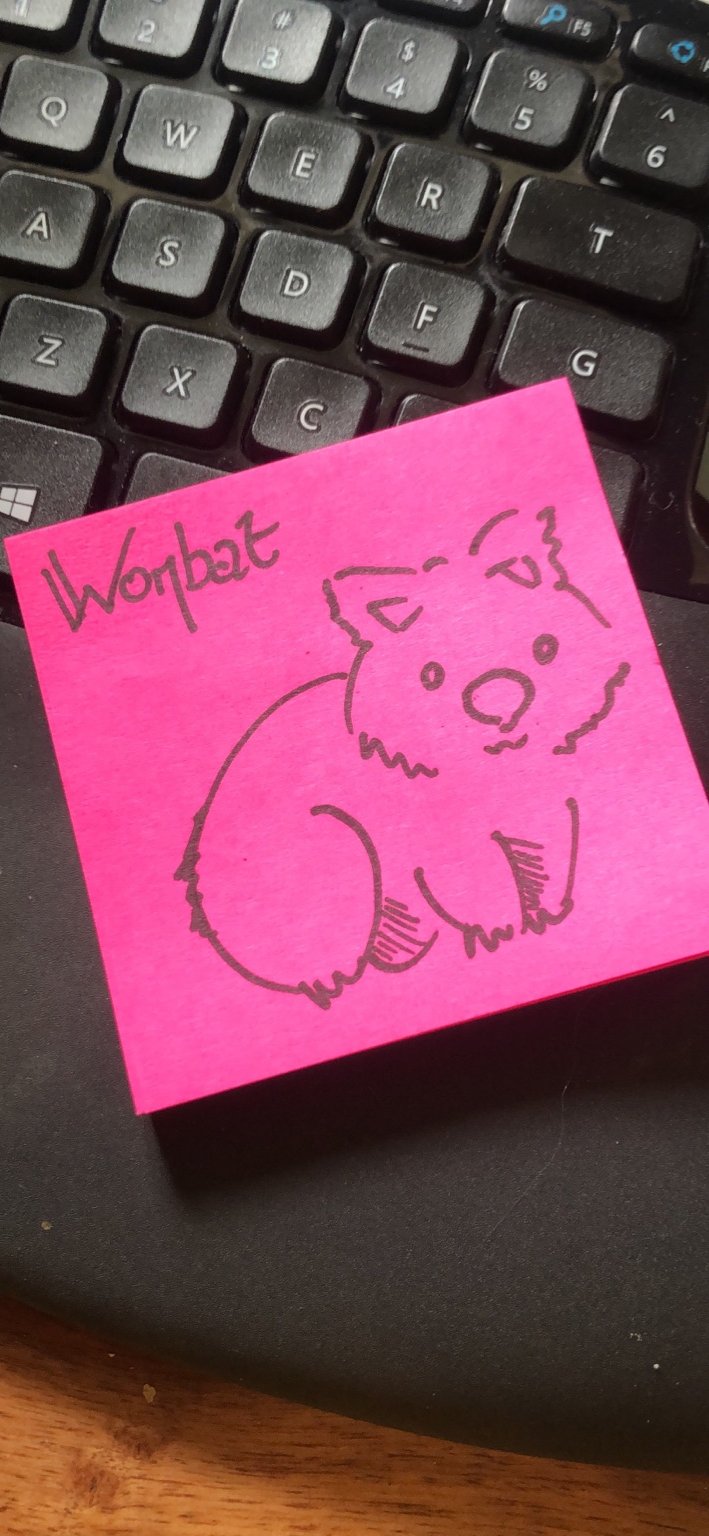 1 2 # 3 $ 4 % 5 ^ 6 F5
Q W E R T
A S D F G
Z X C
Wombat